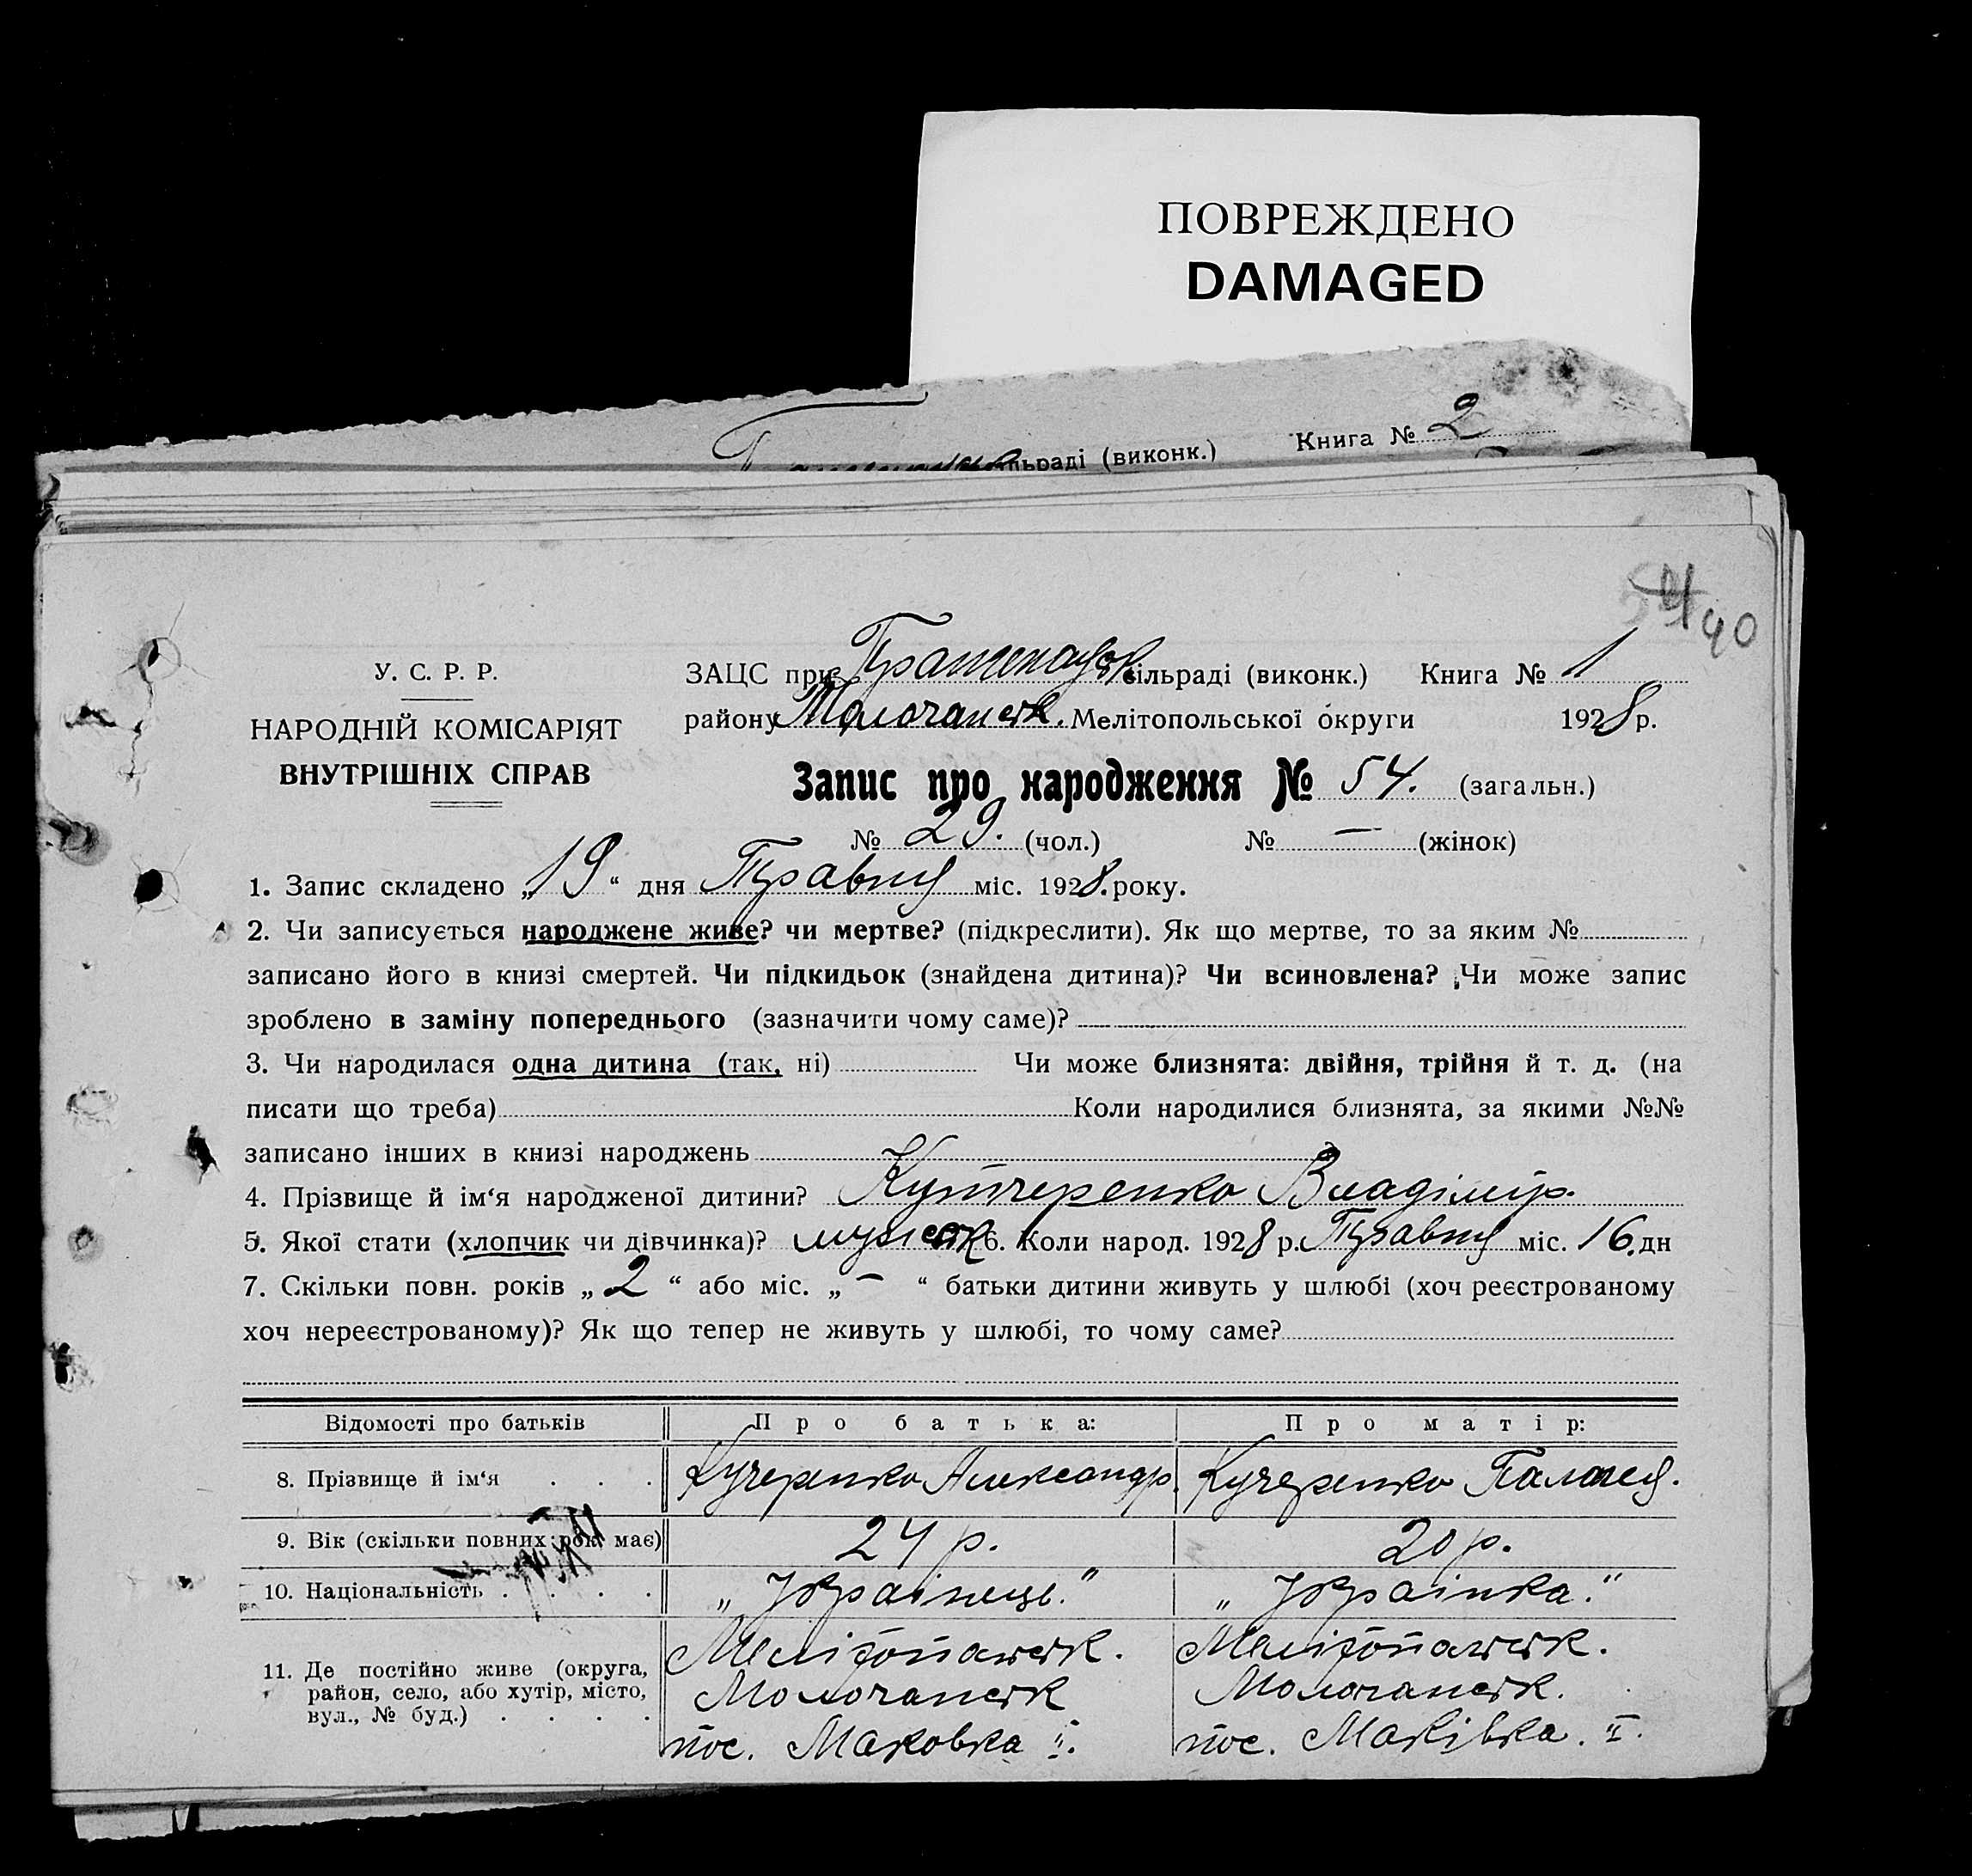 ПОВРЕЖДЕНО
DAMAGED
ільраді (виконк.) Книга № 2
40
У. С. Р. Р.
НАРОДНІЙ КОМІСАРІЯТ
ВНУТРІШНІХ СПРАВ
ЗАЦС при сільраді (виконк.) Книга № 1
району Молочанськ. Мелітопольської округи 1928 р.
Запис про народження № 54. (загальн.)
№ 29. (чол.) № — (жінок)
1. Запис складено „19“ дня Травня міс. 1928. року.
2. Чи записується народжене живе? чи мертве? (підкреслити). Як що мертве, то за яким №
записано його в книзі смертей. Чи підкидьок (знайдена дитина)? Чи всиновлена? Чи може запис
зроблено в заміну попереднього (зазначити чому саме)?
3. Чи народилася одна дитина (так, ні) Чи може близнята: двійня, трійня й т. д. (на
писати що треба) Коли народилися близнята, за якими №№
записано інших в книзі народжень
4. Прізвище й ім‘я народженої дитини? Кутчеренко Владімір.
5. Якої стати (хлопчик чи дівчинка)? мужск 6. Коли народ. 1928 р. Травня міс. 16. дн
7. Скільки повн. років „2“ або міс. „—“ батьки дитини живуть у шлюбі (хоч реєстрованому
хоч нереєстрованому)? Як що тепер не живуть у шлюбі, то чому саме?
Відомості про батьків Про батька: Про матір:
8. Прізвище й ім‘я . . . Кучеренко Александр. Кучеренко Палагея.
9. Вік (скільки повних рок. має) 24 р. 20 р.
10. Національність . . . . „Українець.“ „Українка.“
11. Де постійно живе (округа,
район, село, або хутір, місто,
вул., № буд.) . . . .
Мелітопольск. Мелітопольск.
Молочанськ Молочанськ.
пос. Маковка II. пос. Маківка. II.